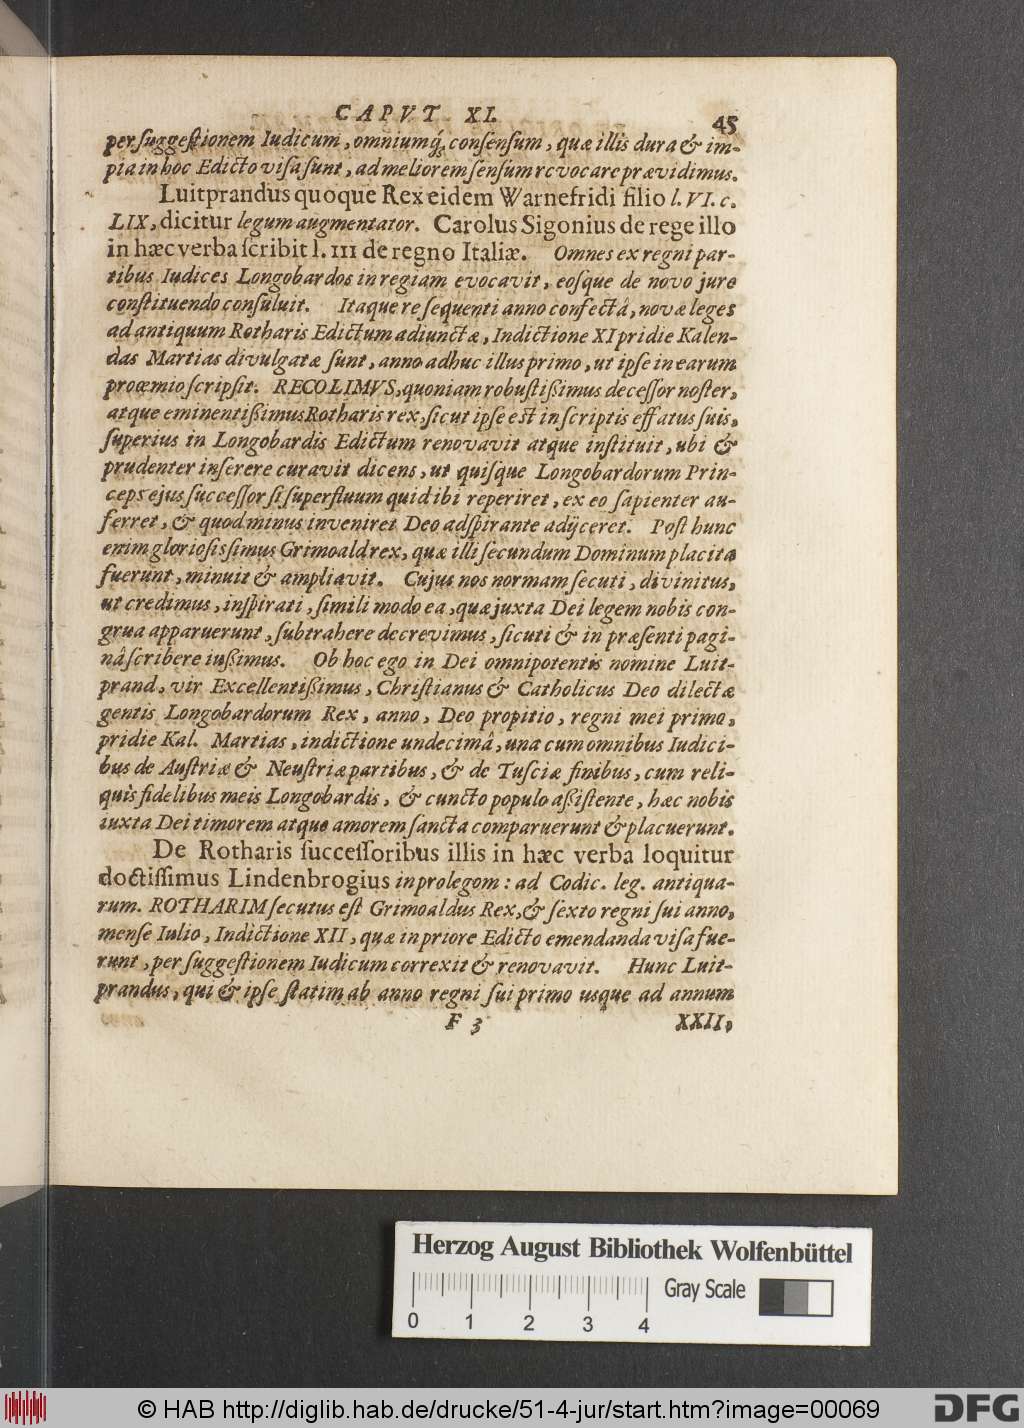 CAPVT XI. 45
per ſuggeſtionem Iudicum, omniumq́; conſenſum, quæ illis dura & im-
pia in hoc Edicto viſa ſunt, ad meliorem ſenſum revocare prævidimus.
Luitprandus quoque Rex eidem Warnefridi filio l. VI. c.
LIX, dicitur legum augmentator. Carolus Sigonius de rege illo
in hæc verba ſcribit l. III de regno Italiæ. Omnes ex regni par-
tibus Iudices Longobardos in regiam evocavit, eoſque de novo jure
conſtituendo conſuluit. Itaque re ſequenti anno confectâ, novæ leges
ad antiquum Rotharis Edictum adiunctæ, Indictione XI pridie Kalen-
das Martias divulgatæ ſunt, anno adhuc illus primo, ut ipſe in earum
proœmio ſcripſit. RECOLIMVS, quoniam robuſtißimus deceſſor noſter,
atque eminentißimus Rotharis rex, ſicut ipſe eſt in ſcriptis effatus ſuis,
ſuperius in Longobardis Edictum renovavit atque inſtituit, ubi &
prudenter inſerere curavit dicens, ut quiſque Longobardorum Prin-
ceps ejus ſucceſſor ſi ſuperfluum quid ibi reperiret, ex eo ſapienter au-
ferret, & quod minus inveniret Deo adſpirante adijceret. Poſt hunc
enim glorioſisſimus Grimoald rex, quæ illi ſecundum Dominum placita
fuerunt, minuit & ampliavit. Cujus nos normam ſecuti, divinitus,
ut credimus, inſpirati, ſimili modo ea, quæ juxta Dei legem nobis con-
grua apparuerunt, ſubtrahere decrevimus, ſicuti & in præſenti pagi-
nâ ſcribere iußimus. Ob hoc ego in Dei omnipotentis nomine Luit-
prand, vir Excellentißimus, Chriſtianus & Catholicus Deo dilectæ
gentis Longobardorum Rex, anno, Deo propitio, regni mei primo,
pridie Kal. Martias, indictione undecimâ, una cum omnibus Iudici-
bus de Auſtriæ & Neuſtriæ partibus, & de Tuſciæ finibus, cum reli-
quis fidelibus meis Longobardis, & cuncto populo aßiſtente, hæc nobis
iuxta Dei timorem atque amorem ſancta comparuerunt & placuerunt.
De Rotharis ſucceſſoribus illis in hæc verba loquitur
doctiſſimus Lindenbrogius in prolegom: ad Codic. leg. antiqua-
rum. ROTHARIM ſecutus eſt Grimoaldus Rex, & ſexto regni ſui anno,
menſe Iulio, Indictione XII, quæ in priore Edicto emendanda viſa fue-
runt, per ſuggeſtionem Iudicum correxit & renovavit. Hunc Luit-
prandus, qui & ipſe ſtatim ab anno regni ſui primo usque ad annum
F 3 XXII,
Herzog August Bibliothek Wolfenbüttel
Gray Scale
0 1 2 3 4
© HAB http://diglib.hab.de/drucke/51-4-jur/start.htm?image=00069
DFG